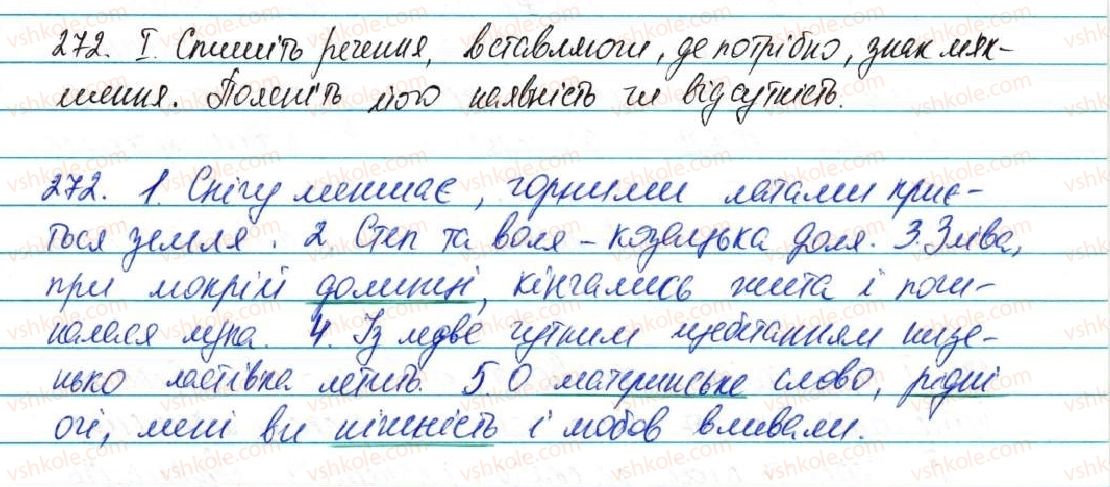 272. І. Спишіть речення, вставляючи, де потрібно, знак мяк-
шення. Поясніть його наявність чи відсутність.
272. 1. Снігу меншає, чорними латами приє-
ться земля. 2. Степ та воля – козацька доля. 3. Зліва,
при мокрій долинці, кінчались жита і почи-
налася лука. 4. Із ледве чутним щебетанням низе-
нько ластівка летить. 5. О материнське слово, рідні
очі, мені ви ніжність і любов вливали.